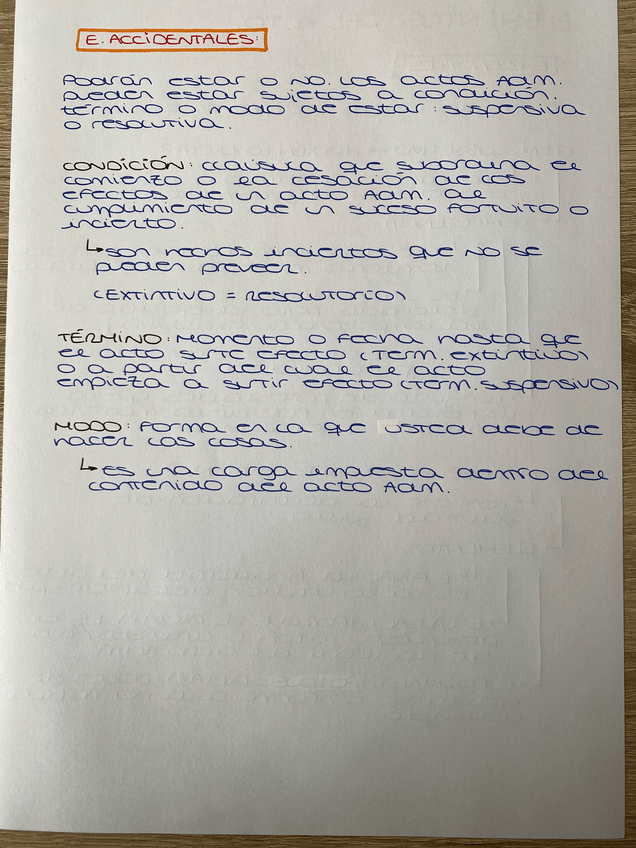 E. ACCIDENTALES:
Podrán estar o no. Los actos Adm.
pueden estar sujetos a condición,
término o modo de estar: suspensiva
o resolutiva.
CONDICIÓN: cláusula que subordina el
comienzo o la cesación de los
efectos de un acto Adm. al
cumplimiento de un suceso fortuito o
incierto.
↳ son hechos inciertos que no se
pueden preveer.
(EXTINTIVO = RESOLUTORIO)
TÉRMINO: Momento o fecha hasta que
el acto surte efecto (Term. extintivo)
o a partir del cual el acto
empieza a surtir efecto (Term. suspensivo)
MODO: Forma en la que usted debe de
hacer las cosas.
↳ es una carga impuesta dentro del
contenido del acto Adm.